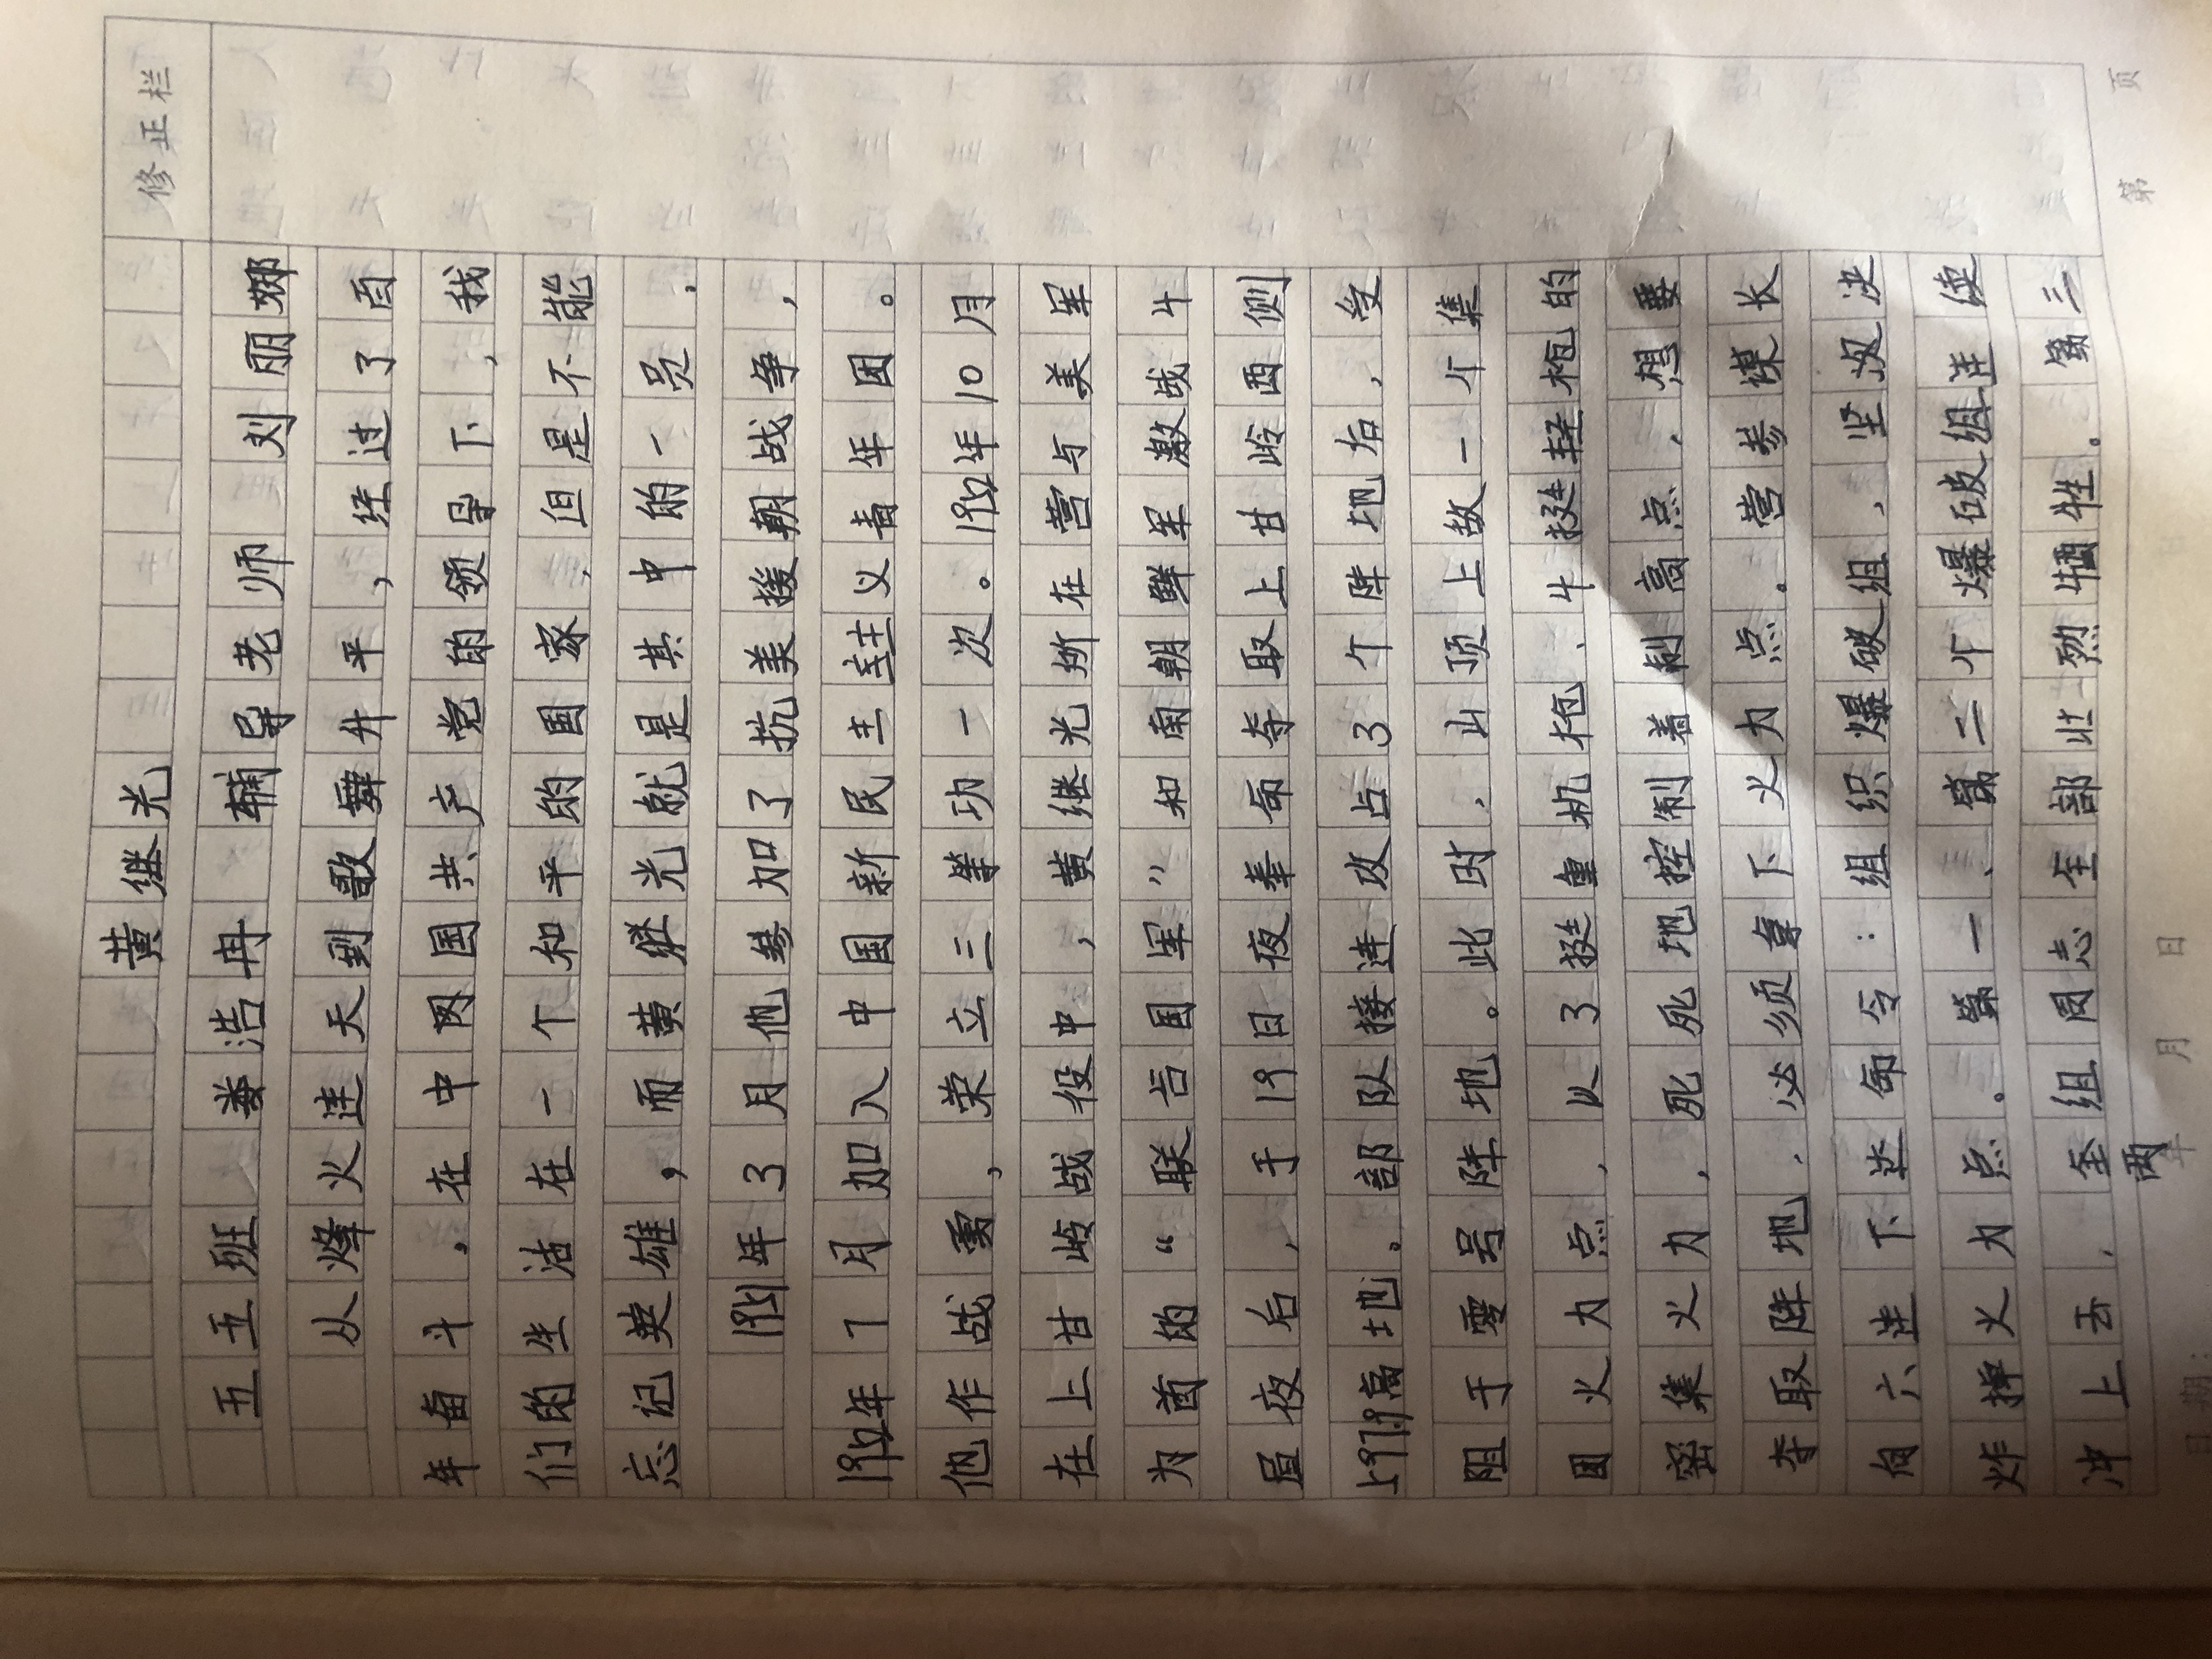 修正栏
黄继光
五五班 娄浩冉 辅导老师 刘丽娜
从烽火连天到歌舞升平,经过了百
年奋斗,在中国共产党的领导下,我
们的生活在一个和平的国家,但是不能
忘记英雄,而黄继光就是其中的一员,
1951年3月他参加了抗美援朝战争,
1952年7月加入中国新民主主义青年团。
他作战勇,荣立三等功一次。1952年10月
在上甘岭战役中,黄继光所在营与美军
为首的“联合国军”和南朝鲜军激战4
昼夜后,于19日夜奉命夺取上甘岭西侧
上97.9高地。部队接连攻占3个阵地后,受
阻于零号阵地。此时,山顶上敌一个集
团火力点,以3挺重机枪、4挺轻枪的
密集火力,死死地控制着制高点,想要
夺取阵地,必须拿下火力点。营参谋长
向六连下达命令:组织爆破组,坚决
炸掉火力点。第一、第二个爆破组连续
冲上去,全组同志全部壮烈牺牲。第三
两
日期: 年 月 日 第 页